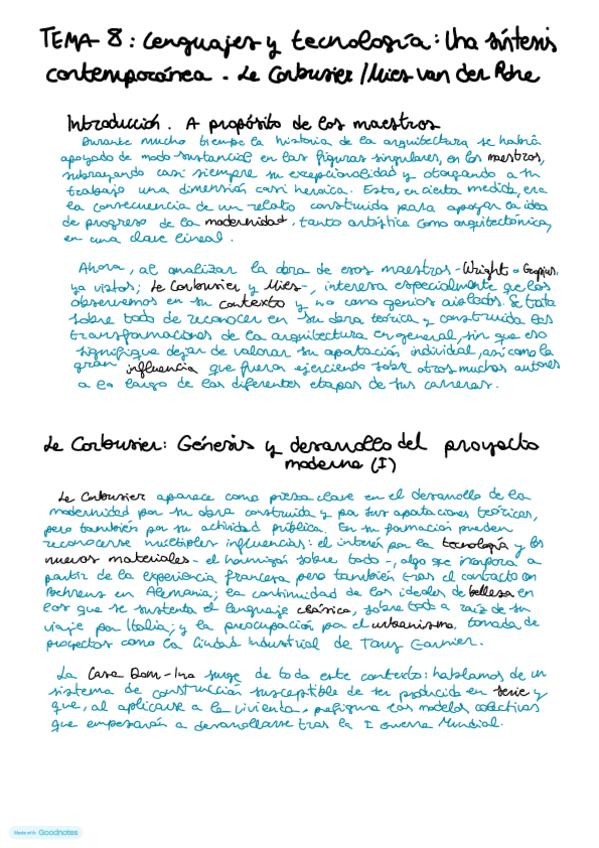 TEMA 8: Lenguajes y tecnología: Una síntesis
contemporánea. Le Corbusier / Mies van der Rohe
Introducción. A propósito de los maestros
Durante mucho tiempo la historia de la arquitectura se había
apoyado de modo sustancial en las figuras singulares, en los maestros,
subrayando casi siempre su excepcionalidad y otorgando a su
trabajo una dimensión casi heroica. Esta, en cierta medida, era
la consecuencia de un relato construido para apoyar la idea
de progreso de la modernidad, tanto artística como arquitectónica,
en una clave lineal.
Ahora, al analizar la obra de esos maestros - Wright o Gropius,
ya vistos; Le Corbusier y Mies -, interesa especialmente que los
observemos en su contexto y no como genios aislados. Se trata
sobre todo de reconocer en su obra teórica y construida las
transformaciones de la arquitectura en general, sin que eso
signifique dejar de valorar su aportación individual, así como la
gran influencia que fueron ejerciendo sobre otros muchos autores
a lo largo de las diferentes etapas de sus carreras.
Le Corbusier: Génesis y desarrollo del proyecto
moderno (I)
Le Corbusier aparece como pieza clave en el desarrollo de la
modernidad por su obra construida y por sus aportaciones teóricas,
pero también por su actividad pública. En su formación pueden
reconocerse múltiples influencias: el interés por la tecnología y los
nuevos materiales - el hormigón sobre todo -, algo que incorpora a
partir de la experiencia francesa pero también tras el contacto con
Behrens en Alemania; la continuidad de los ideales de belleza en
los que se sustenta el lenguaje clásico, sobre todo a raíz de su
viaje por Italia; y la preocupación por el urbanismo, tomada de
proyectos como la Ciudad Industrial de Tony Garnier.
La Casa Dom-Ino surge de todo este contexto: hablamos de un
sistema de construcción susceptible de ser producida en serie y
que, al aplicarse a la vivienda, prefigura los modelos colectivos
que empezarán a desarrollarse tras la I Guerra Mundial.
Made with Goodnotes